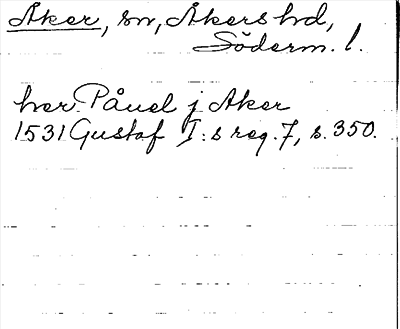 Åker, sn, Åkers hd,
Söderm. l.
her Pånel j Aker
1531 Gustaf I:s reg. 7, s. 350.